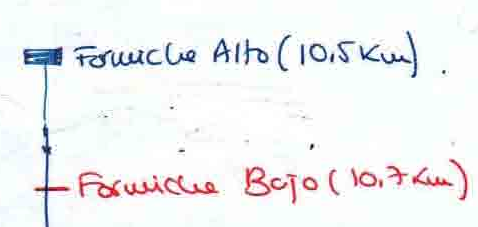 Formiche Alto (10,5 Km).
Formiche Bajo (10,7 Km)